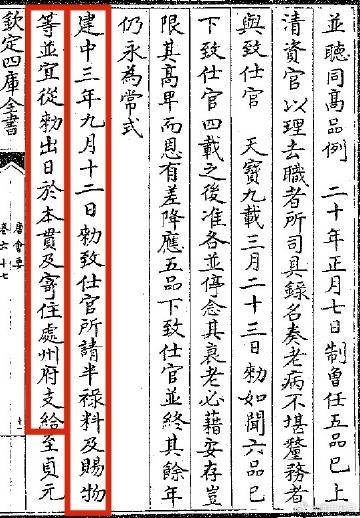 並聽同高品例 二十年正月七日制曾任五品已上
清資官以理去職者所司具錄名奏老病不堪釐務者
與致仕官 天寶九載三月二十三日勅如聞六品已
下致仕官四載之後准各並停念其衰老必藉安存豈
限其高卑而恩有差降應五品下致仕官並終其餘年
仍永為常式
建中三年九月十二日勅致仕官所請半禄料及賜物
等並宜從勅出日於本貫及寄住處州府支給至貞元
欽定四庫全書
唐會要
卷六十七